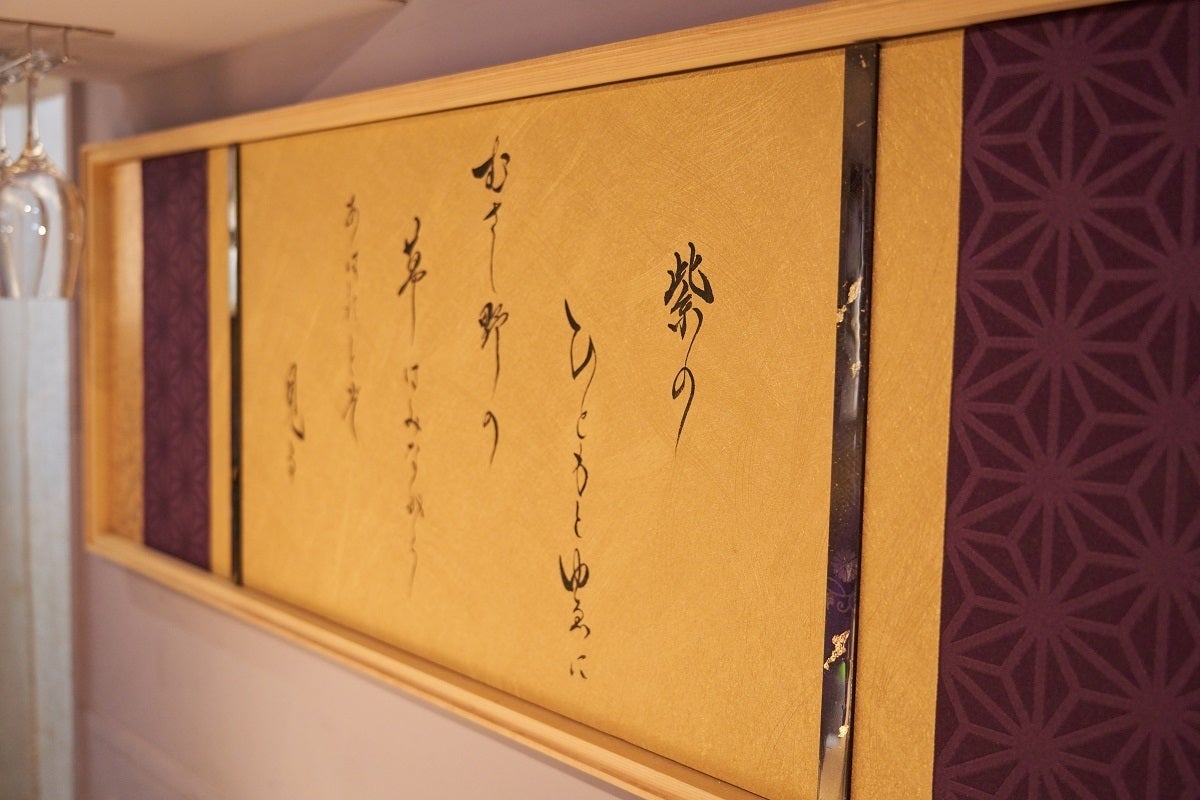 紫の
ひともとゆゑに
むさし野の
草はみながら
あはれとぞ
見る